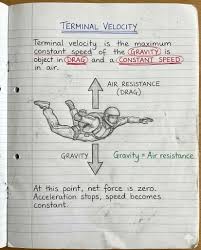 TERMINAL VELOCITY
Terminal velocity is the maximum
constant speed of the GRAVITY is
object in DRAG and a CONSTANT SPEED
in air.
AIR RESISTANCE
(DRAG)
GRAVITY
Gravity = Air resistance
At this point, net force is zero.
Acceleration stops, speed becomes
constant.